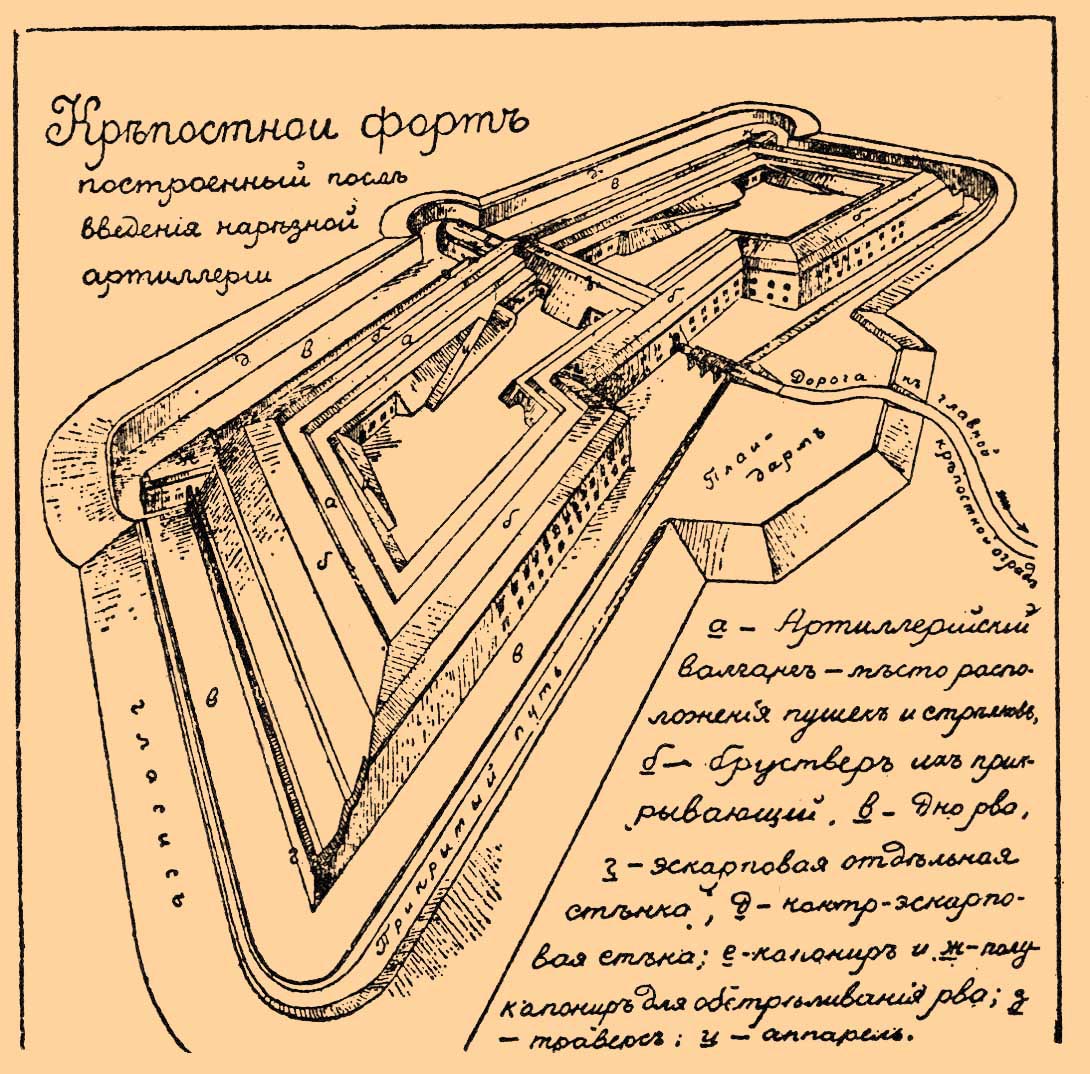 Крѣпостной фортъ
построенный послѣ
введенія нарѣзной
артиллеріи
д
в
б
д в б а
е
з
б
б
и
ж
а
б
б
в
в
г
гласисъ
Прикритый путь
Плац-
дармъ
Дорога къ главной
крѣпостной оградѣ
а – Артиллерійскій
валгангъ – мѣсто распо-
ложенія пушекъ и стрѣлковъ,
б – брустверъ ихъ прик-
рывающій, в – дно рва,
г – эскарповая отдѣльная
стѣнка, д – контр-эскарпо-
вая стѣна; е – капониръ и ж – полу
капониръ для обстрѣливанія рва; з
– траверсъ; и – аппарель.